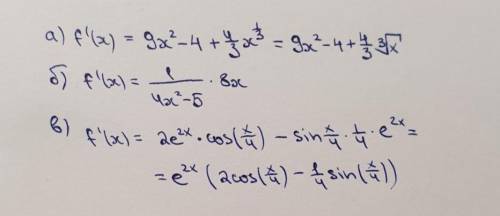 а) f'(x) = 9x² - 4 + 4/3 x^(1/3) = 9x² - 4 + 4/3 ∛x
б) f'(x) = 1/(4x² - 5) · 8x
в) f'(x) = 2e^(2x) · cos(x/4) - sin x/4 · 1/4 · e^(2x) =
= e^(2x) (2cos(x/4) - 1/4 sin(x/4))